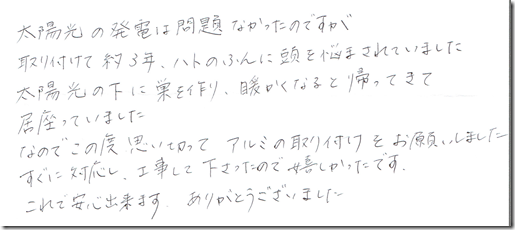 太陽光の発電は問題なかったのですが
取り付けて約3年、ハトのふんに頭を悩まされていました
太陽光の下に巣を作り、暖かくなると帰ってきて
居座っていました
なのでこの度思い切って アルミの取り付けをお願いしました
すぐに対応し、工事して下さったので嬉しかったです.
これで安心出来ます. ありがとうございました